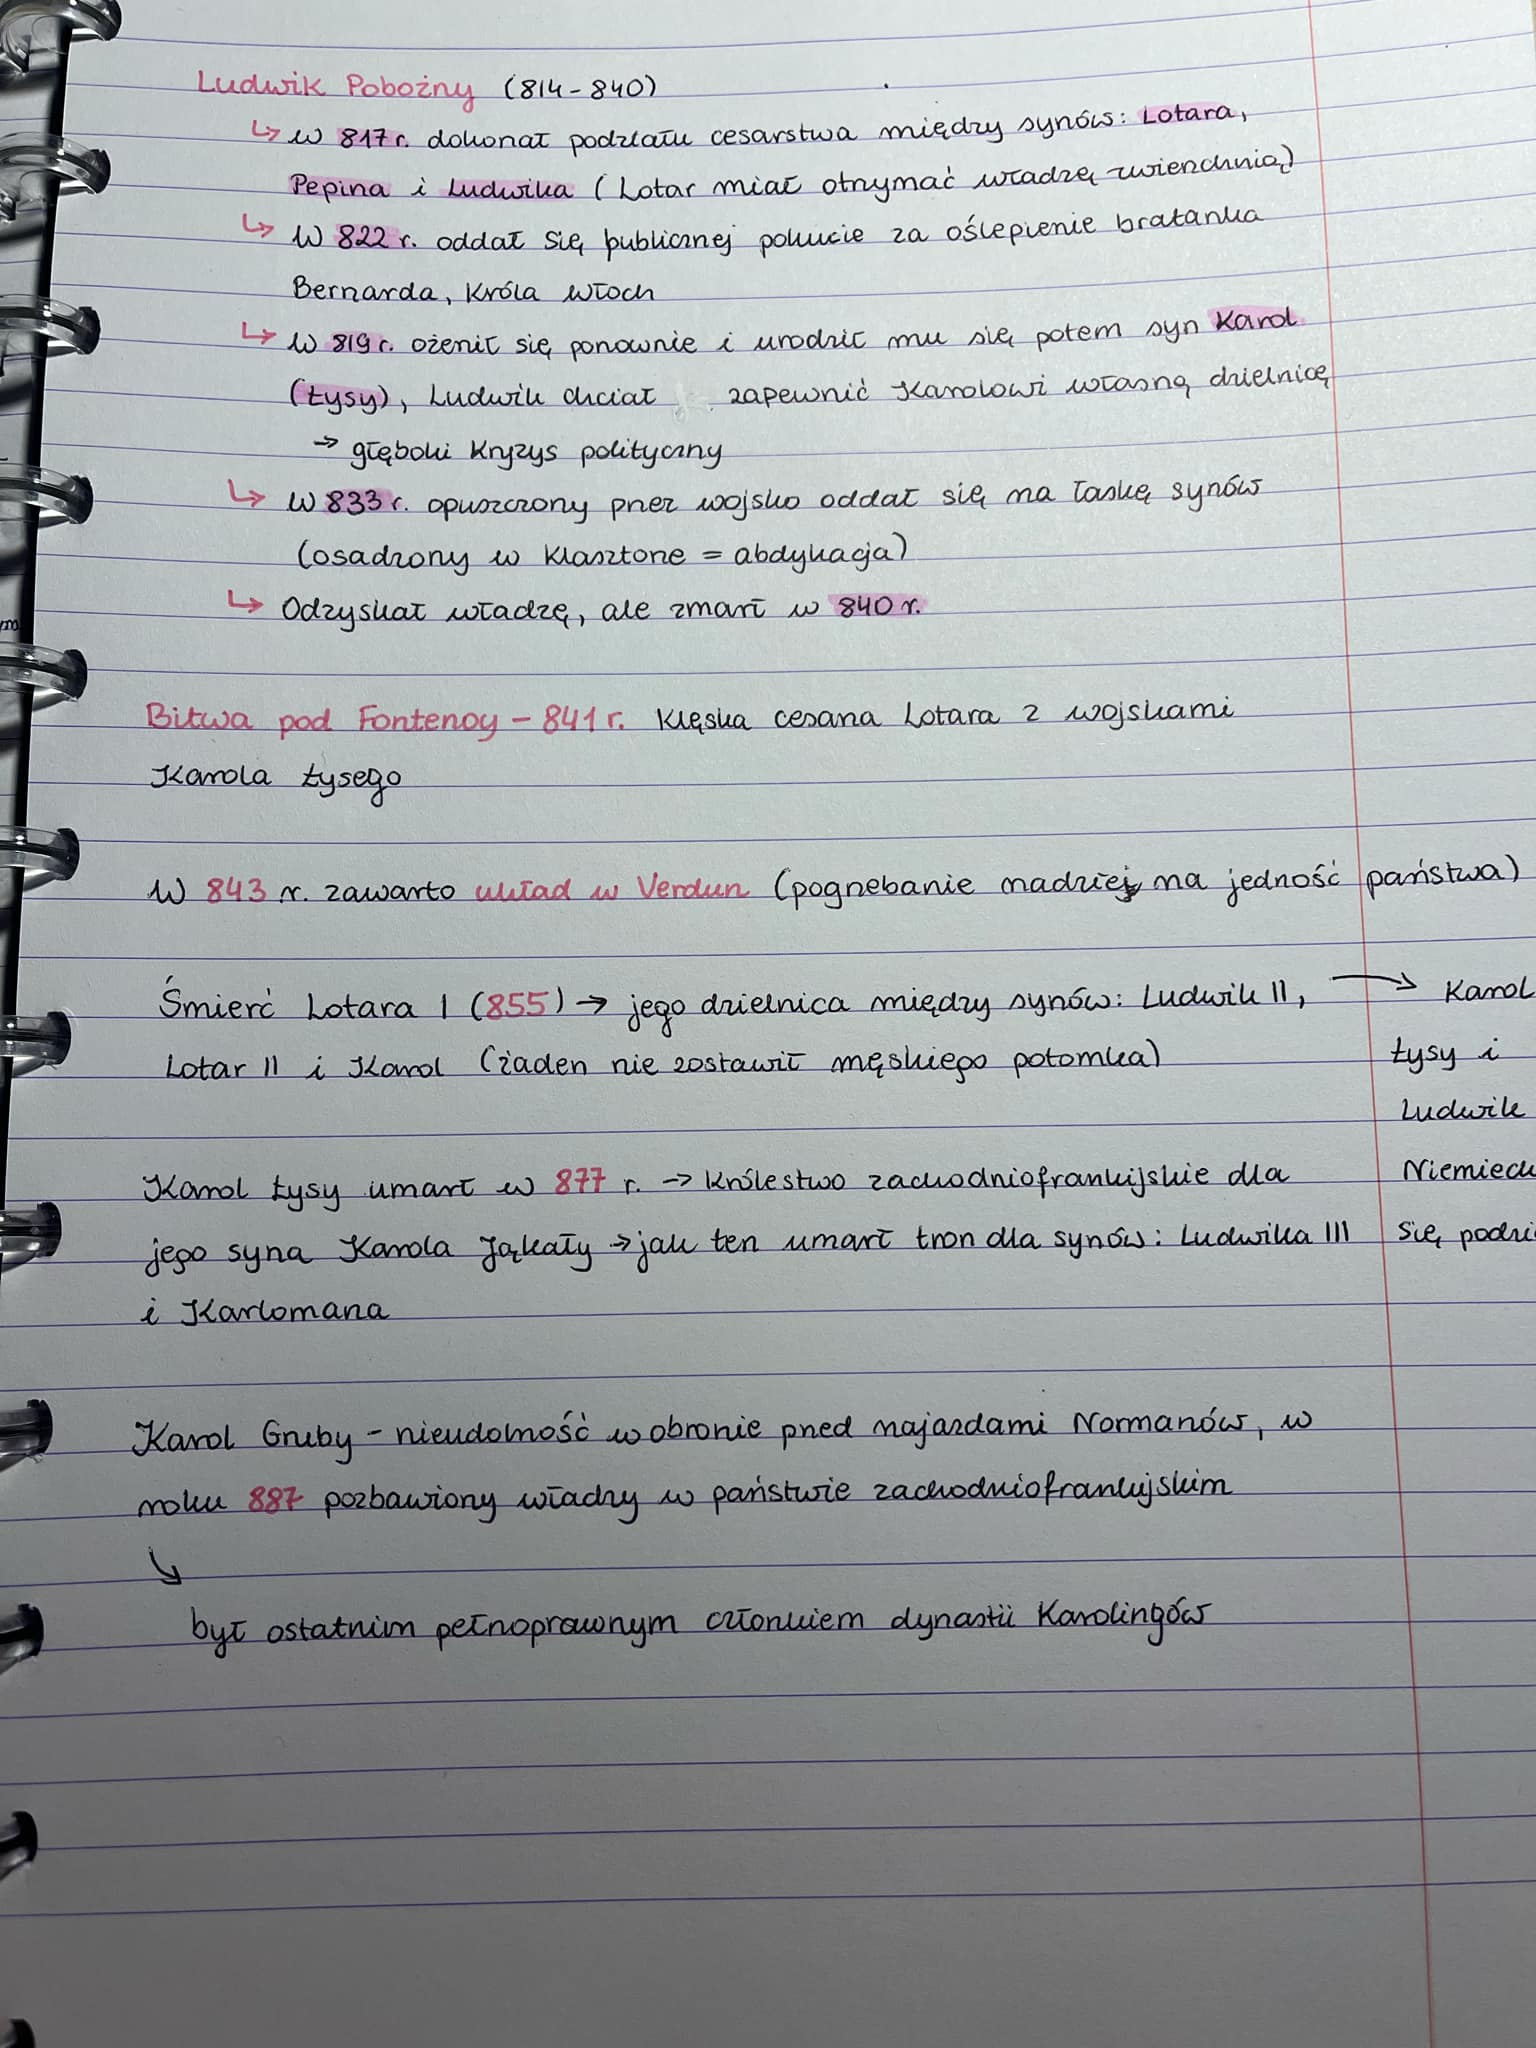 Ludwik Pobożny (814-840)
↳ W 817 r. dokonał podziału cesarstwa między synów: Lotara,
Pepina i Ludwika (Lotar miał otrzymać władzę zwierzchnią)
↳ W 822 r. oddał się publicznej pokucie za oślepienie bratanka
Bernarda, króla Włoch
↳ W 819 r. ożenił się ponownie i urodził mu się potem syn Karol
(Łysy), Ludwik chciał zapewnić Karolowi własną dzielnicę
→ głęboki kryzys polityczny
↳ W 833 r. opuszczony przez wojsko oddał się na łaskę synów
(osadzony w klasztorze = abdykacja)
↳ Odzyskał władzę, ale zmarł w 840 r.
Bitwa pod Fontenoy - 841 r. Klęska cesarza Lotara z wojskami
Karola Łysego
W 843 r. zawarto układ w Verdun (pogrzebanie nadziej na jedność państwa)
Śmierć Lotara I (855) → jego dzielnica między synów: Ludwik II,
Lotar II i Karol (żaden nie zostawił męskiego potomka)
→ Karol
Łysy i
Ludwik
Niemieck
się podzi
Karol Łysy umarł w 877 r. → Królestwo zachodniofrankijskie dla
jego syna Karola Jąkały → jak ten umarł tron dla synów: Ludwika III
i Karlomana
Karol Gruby - nieudolność w obronie przed najazdami Normanów, w
roku 887 pozbawiony władzy w państwie zachodniofrankijskim
↘
był ostatnim pełnoprawnym członkiem dynastii Karolingów